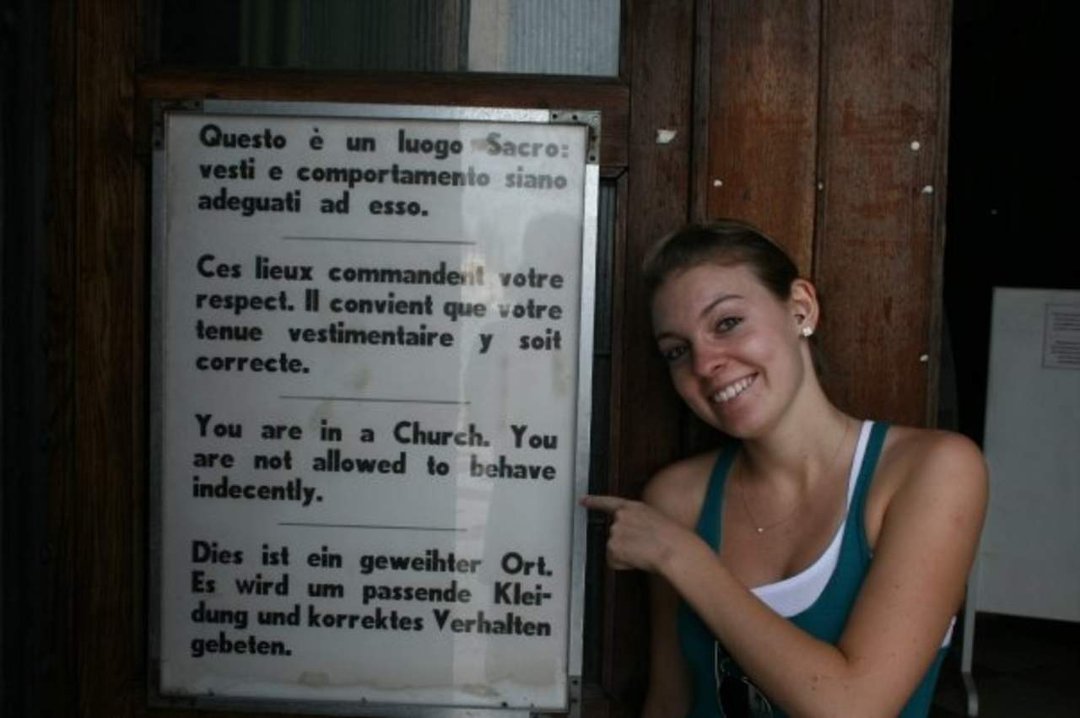 Questo è un luogo Sacro:
vesti e comportamento siano
adeguati ad esso.
Ces lieux commandent votre
respect. Il convient que votre
tenue vestimentaire y soit
correcte.
You are in a Church. You
are not allowed to behave
indecently.
Dies ist ein geweihter Ort.
Es wird um passende Klei-
dung und korrektes Verhalten
gebeten.